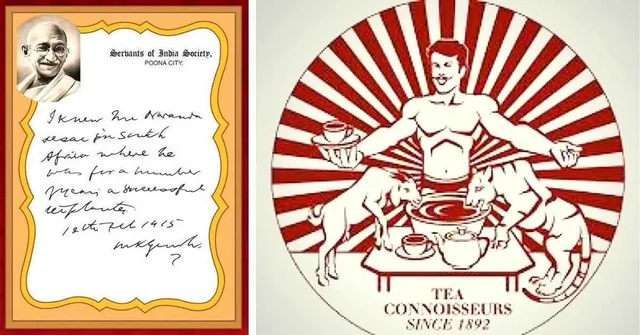 Servants of India Society,
POONA CITY.
I knew Mr Naranda
desai in South
Africa where he
was for a number
years a successful
1915
MKGandhi
TEA
CONNOISSEURS
SINCE 1892